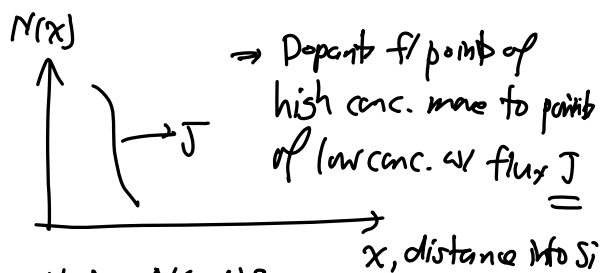 N(x)
⇒ Dopants f/ points of
high conc. move to points
of low conc. w/ flux J
J
x, distance into Si